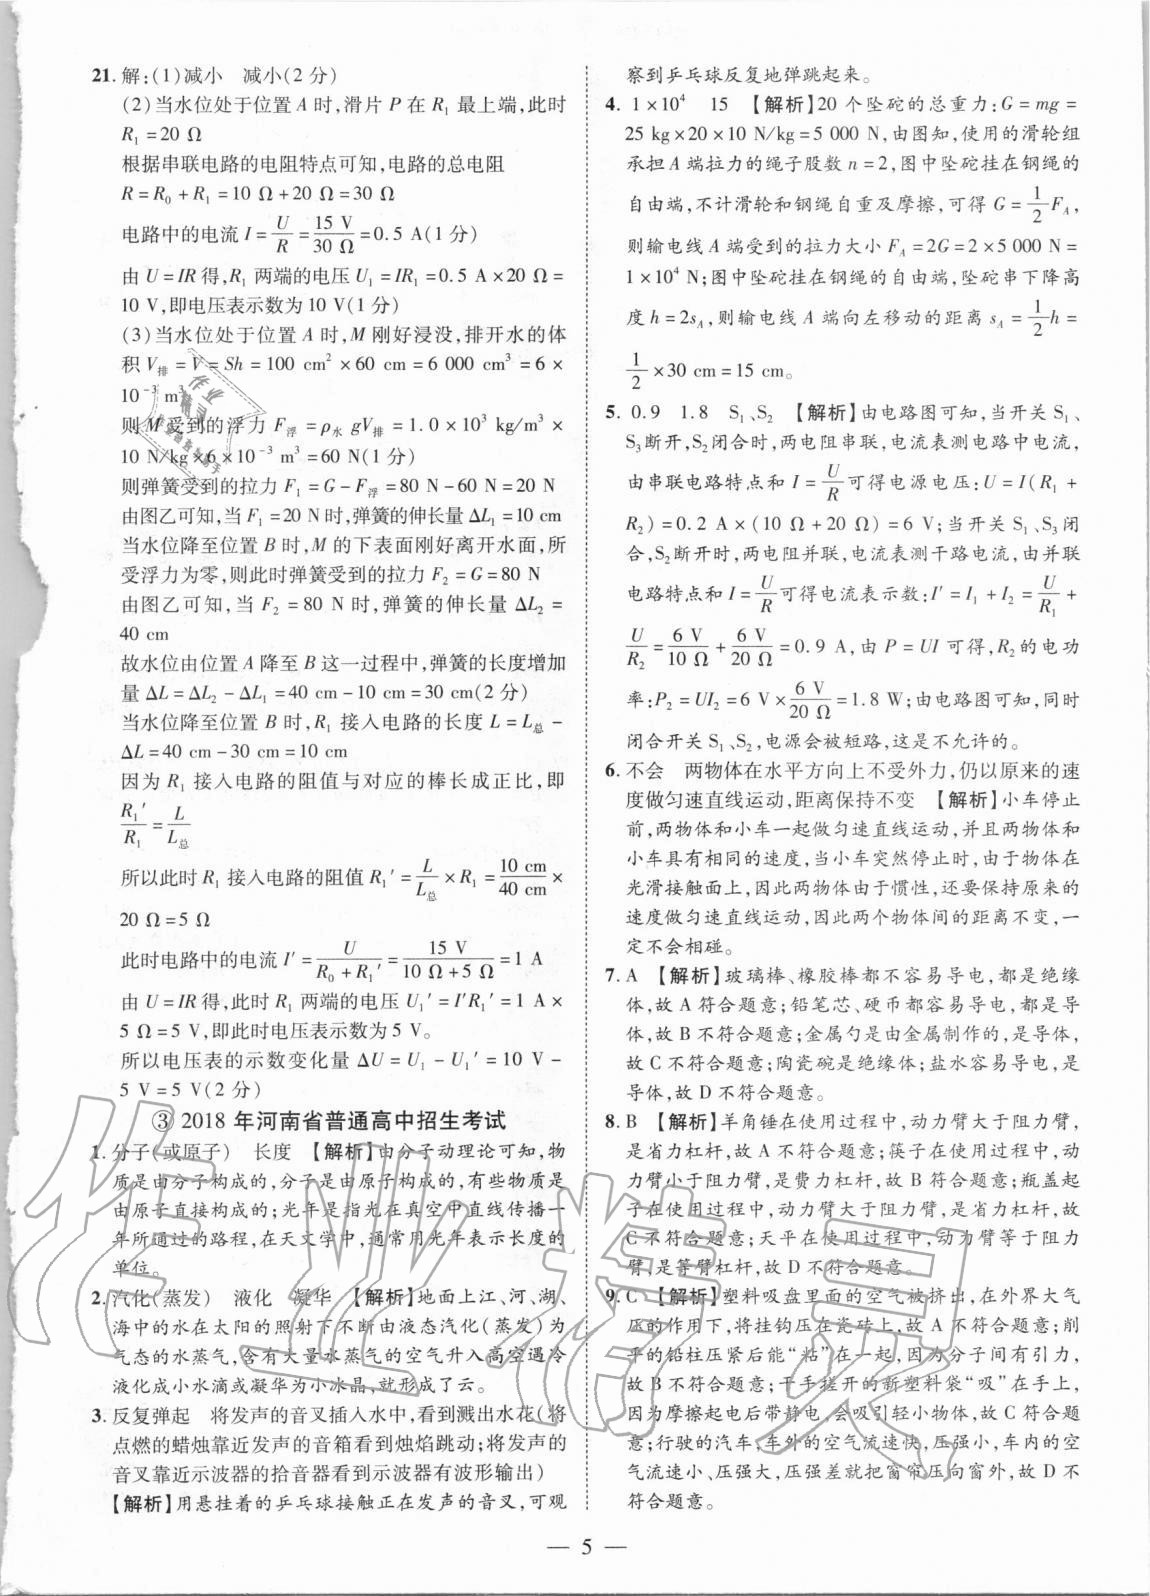 21. 解:(1)减小　减小(2 分)
(2)当水位处于位置 A 时,滑片 P 在 R₁ 最上端,此时
R₁ = 20 Ω
根据串联电路的电阻特点可知,电路的总电阻
R = R₀ + R₁ = 10 Ω + 20 Ω = 30 Ω
电路中的电流 I = U/R = 15 V/30 Ω = 0.5 A(1 分)
由 U = IR 得,R₁ 两端的电压 U₁ = IR₁ = 0.5 A × 20 Ω =
10 V,即电压表示数为 10 V(1 分)
(3)当水位处于位置 A 时,M 刚好浸没,排开水的体
积 V排 = V = Sh = 100 cm² × 60 cm = 6 000 cm³ = 6 ×
10⁻³ m³
则 M 受到的浮力 F浮 = ρ水 gV排 = 1.0 × 10³ kg/m³ ×
10 N/kg × 6 × 10⁻³ m³ = 60 N(1 分)
则弹簧受到的拉力 F₁ = G − F浮 = 80 N − 60 N = 20 N
由图乙可知,当 F₁ = 20 N 时,弹簧的伸长量 ΔL₁ = 10 cm
当水位降至位置 B 时,M 的下表面刚好离开水面,所
受浮力为零,则此时弹簧受到的拉力 F₂ = G = 80 N
由图乙可知,当 F₂ = 80 N 时,弹簧的伸长量 ΔL₂ =
40 cm
故水位由位置 A 降至 B 这一过程中,弹簧的长度增加
量 ΔL = ΔL₂ − ΔL₁ = 40 cm − 10 cm = 30 cm(2 分)
当水位降至位置 B 时,R₁ 接入电路的长度 L = L总 −
ΔL = 40 cm − 30 cm = 10 cm
因为 R₁ 接入电路的阻值与对应的棒长成正比,即
R₁′/R₁ = L/L总
所以此时 R₁ 接入电路的阻值 R₁′ = L/L总 × R₁ = 10 cm/40 cm ×
20 Ω = 5 Ω
此时电路中的电流 I′ = U/(R₀ + R₁′) = 15 V/(10 Ω + 5 Ω) = 1 A
由 U = IR 得,此时 R₁ 两端的电压 U₁′ = I′R₁′ = 1 A ×
5 Ω = 5 V,即此时电压表示数为 5 V。
所以电压表的示数变化量 ΔU = U₁ − U₁′ = 10 V −
5 V = 5 V(2 分)
③ 2018 年河南省普通高中招生考试
1. 分子(或原子)　长度　【解析】由分子动理论可知,物
质是由分子构成的,分子是由原子构成的,有些物质是
由原子直接构成的;光年是指光在真空中直线传播一
年所通过的路程,在天文学中,通常用光年表示长度的
单位。
2. 汽化(蒸发)　液化　凝华　【解析】地面上江、河、湖、
海中的水在太阳的照射下不断由液态汽化(蒸发)为
气态的水蒸气,含有大量水蒸气的空气升入高空遇冷
液化成小水滴或凝华为小冰晶,就形成了云。
3. 反复弹起　将发声的音叉插入水中,看到溅出水花(将
点燃的蜡烛靠近发声的音箱看到烛焰跳动;将发声的
音叉靠近示波器的拾音器看到示波器有波形输出)
【解析】用悬挂着的乒乓球接触正在发声的音叉,可观
察到乒乓球反复地弹跳起来。
4. 1 × 10⁴　15　【解析】20 个坠砣的总重力:G = mg =
25 kg × 20 × 10 N/kg = 5 000 N,由图知,使用的滑轮组
承担 A 端拉力的绳子股数 n = 2,图中坠砣挂在钢绳的
自由端,不计滑轮和钢绳自重及摩擦,可得 G = 1/2 F_A,
则输电线 A 端受到的拉力大小 F_A = 2G = 2 × 5 000 N =
1 × 10⁴ N;图中坠砣挂在钢绳的自由端,坠砣串下降高
度 h = 2s_A,则输电线 A 端向左移动的距离 s_A = 1/2 h =
1/2 × 30 cm = 15 cm。
5. 0.9　1.8　S₁、S₂　【解析】由电路图可知,当开关 S₁、
S₃断开,S₂闭合时,两电阻串联,电流表测电路中电流,
由串联电路特点和 I = U/R 可得电源电压:U = I(R₁ +
R₂) = 0.2 A × (10 Ω + 20 Ω) = 6 V;当开关 S₁、S₃闭
合,S₂断开时,两电阻并联,电流表测干路电流,由并联
电路特点和 I = U/R 可得电流表示数:I′ = I₁ + I₂ = U/R₁ +
U/R₂ = 6 V/10 Ω + 6 V/20 Ω = 0.9 A,由 P = UI 可得,R₂的电功
率:P₂ = UI₂ = 6 V × 6 V/20 Ω = 1.8 W;由电路图可知,同时
闭合开关 S₁、S₂,电源会被短路,这是不允许的。
6. 不会　两物体在水平方向上不受外力,仍以原来的速
度做匀速直线运动,距离保持不变　【解析】小车停止
前,两物体和小车一起做匀速直线运动,并且两物体和
小车具有相同的速度,当小车突然停止时,由于物体在
光滑接触面上,因此两物体由于惯性,还要保持原来的
速度做匀速直线运动,因此两个物体间的距离不变,一
定不会相碰。
7. A　【解析】玻璃棒、橡胶棒都不容易导电,都是绝缘
体,故 A 符合题意;铅笔芯、硬币都容易导电,都是导
体,故 B 不符合题意;金属勺是由金属制作的,是导体,
故 C 不符合题意;陶瓷碗是绝缘体;盐水容易导电,是
导体,故 D 不符合题意。
8. B　【解析】羊角锤在使用过程中,动力臂大于阻力臂,
是省力杠杆,故 A 不符合题意;筷子在使用过程中,动
力臂小于阻力臂,是费力杠杆,故 B 符合题意;瓶盖起
子在使用过程中,动力臂大于阻力臂,是省力杠杆,故
C 不符合题意;天平在使用过程中,动力臂等于阻力
臂,是等臂杠杆,故 D 不符合题意。
9. C　【解析】塑料吸盘里面的空气被挤出,在外界大气
压的作用下,将挂钩压在瓷砖上,故 A 不符合题意;削
平的铅柱压紧后能“粘”在一起,因为分子间有引力,
故 B 不符合题意;干手搓开的新塑料袋“吸”在手上,
因为摩擦起电后带静电,会吸引轻小物体,故 C 符合题
意;行驶的汽车,车外的空气流速快,压强小,车内的空
气流速小、压强大,压强差就把窗帘压向窗外,故 D 不
符合题意。
— 5 —
作业精灵